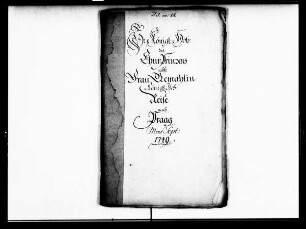 Königl. Hoh.
des
Chur Prinzens
und
Frau Gemahlin
Königl. Hoh.
Reise
nach
Praag
Mens. Sept.
1749